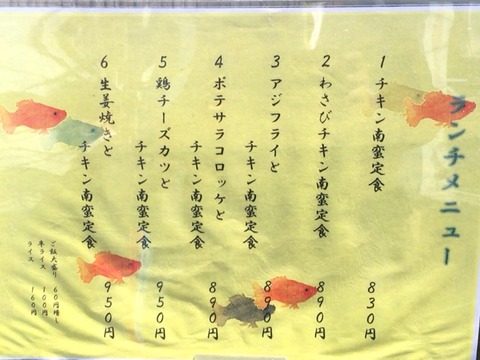 ランチメニュー
1 チキン南蛮定食 830円
2 わさびチキン南蛮定食 890円
3 アジフライと
チキン南蛮定食 890円
4 ポテサラコロッケと
チキン南蛮定食 890円
5 鶏チーズカツと
チキン南蛮定食 950円
6 生姜焼きと
チキン南蛮定食 950円
ご飯大盛り 60円増し
半ライス 100円
ライス 160円